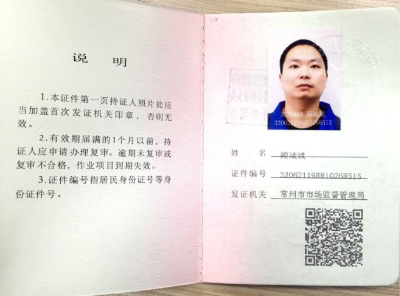 说 明
1.本证件第一页持证人照片处应
当加盖首次发证机关印章，否则无
效。
2.有效期届满的1个月以前，持
证人应申请办理复审。逾期未复审或
复审不合格，作业项目到期失效。
3.证件编号指居民身份证号等身
份证件号。
320621198810268515
姓 名
证件编号 320621198810268515
发证机关 常州市市场监督管理局